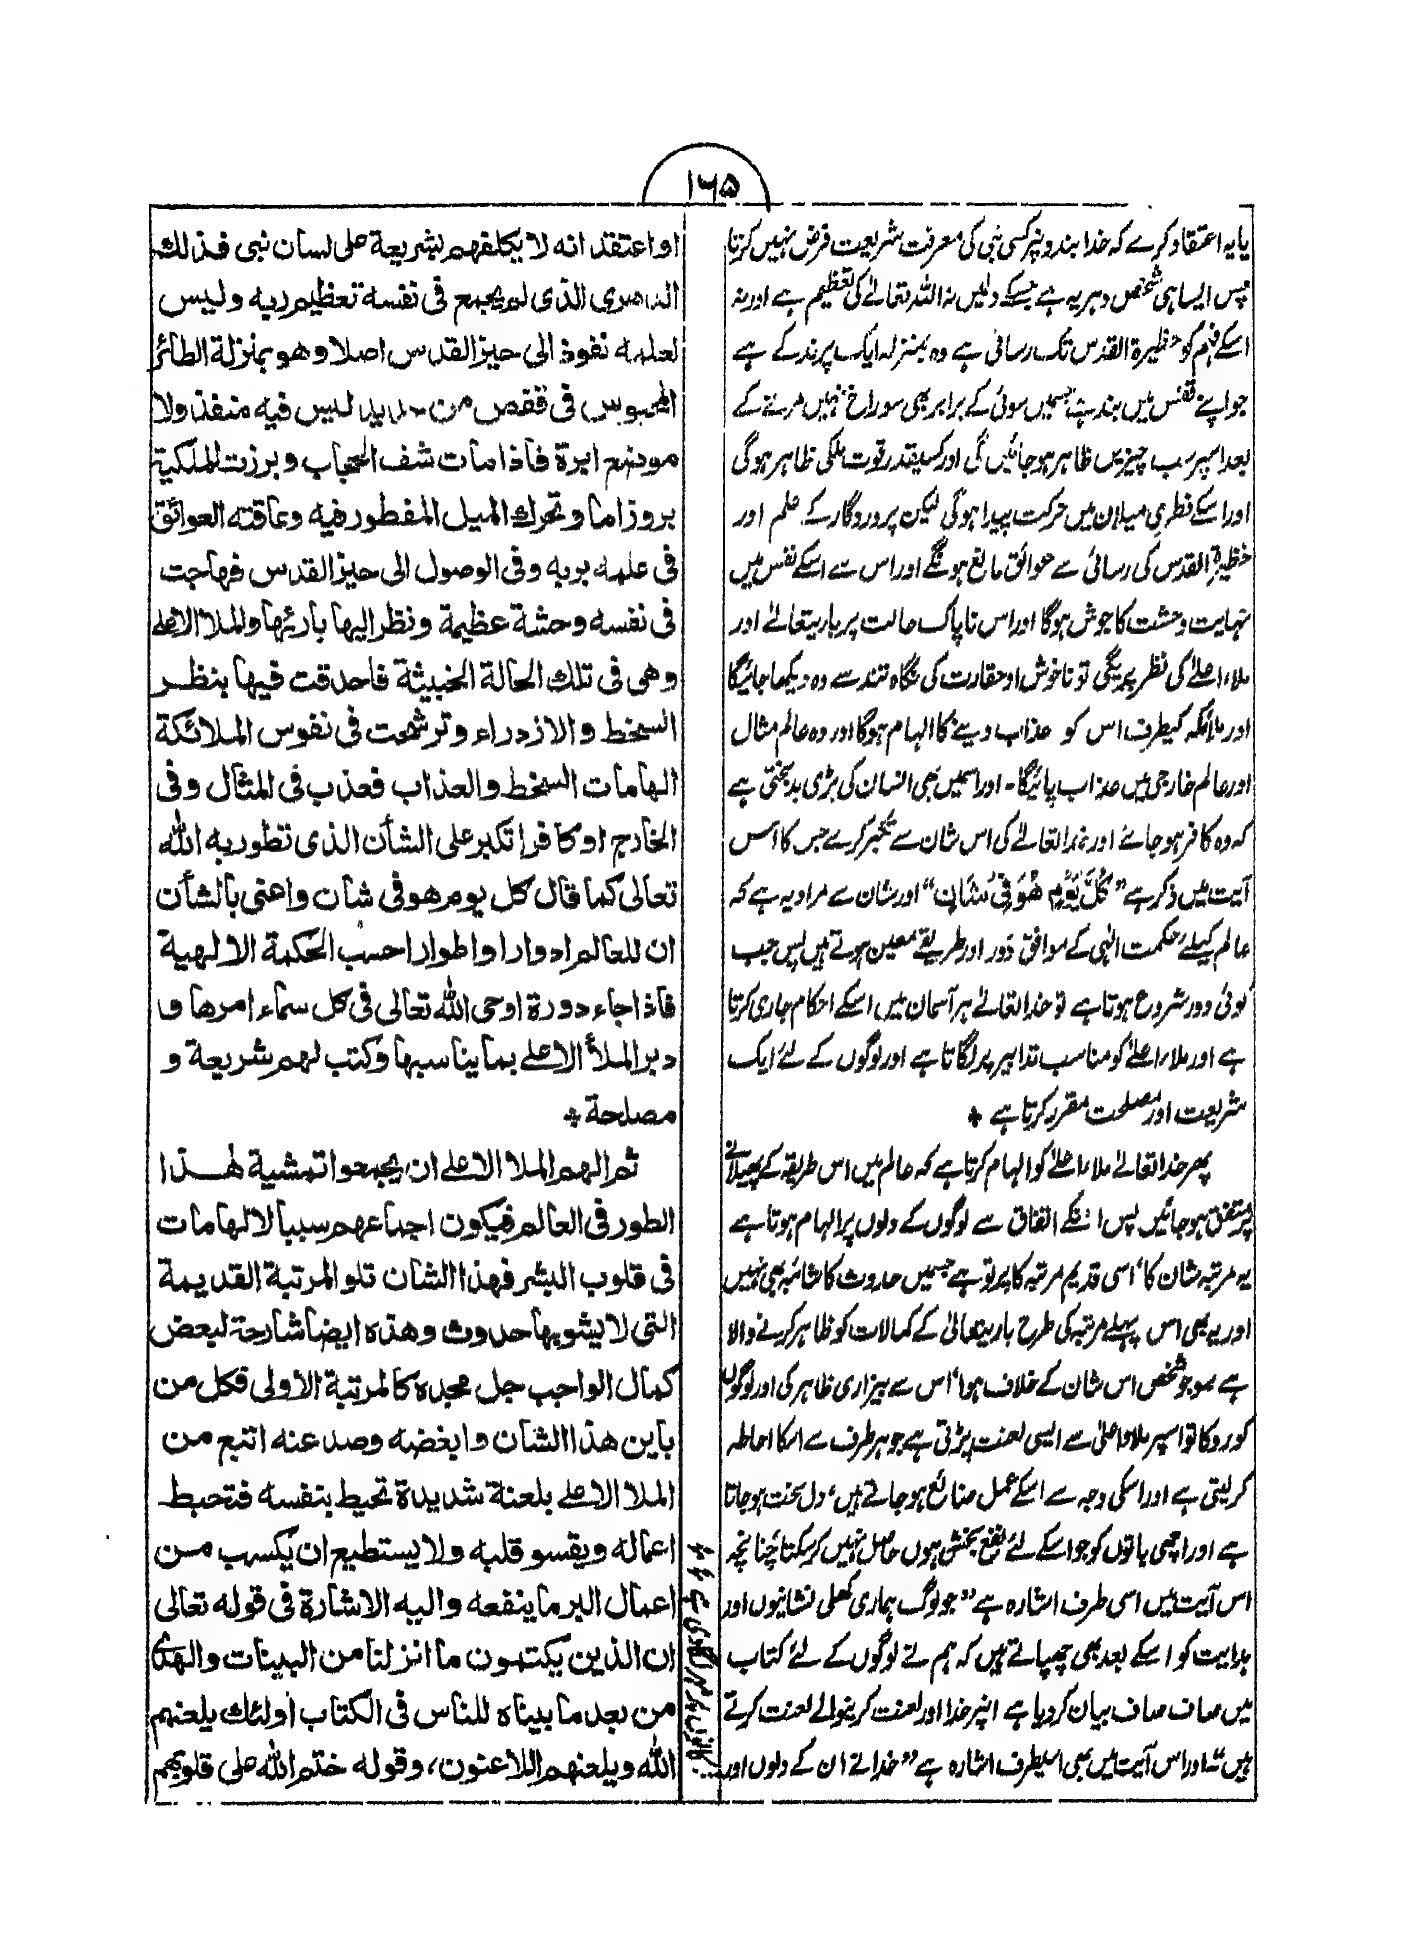 ۱۶۵
یا یہ اعتقاد کرے کہ خدا بندونپر کسی نبی کی معرفت شریعت فرض نہیں کرتا
پس ایسا ہی شخص دہریہ ہے جسکے دلمیں نہ اللہ تعالےٰ کی تعظیم ہے اور نہ
اسکے فہم کو حظیرۃ القدس تک رسائی ہے وہ بمنزلہ ایک پرند کے ہے
جو اپنے قفس میں بند ہے جسمیں سوئی کے برابر بھی سوراخ نہیں مرنے کے
بعد اسپر سب چیزیں ظاہر ہو جائیں گی اور کسیقدر قوت ملکی ظاہر ہو گی
اور اسکے فطری میلان میں حرکت پیدا ہوگی لیکن پروردگار کے علم اور
حظیرۃ القدس کی رسائی سے عوائق مانع ہونگے اور اس سے اسکے نفس میں
نہایت وحشت کا جوش ہوگا اور اس ناپاک حالت پر باریتعالےٰ اور
ملاء اعلےٰ کی نظر پڑیگی تو ناخوش او حقارت کی نگاہ تند سے وہ دیکھا جائیگا
اور ملائکہ کیطرف اس کو عذاب دینے کا الہام ہوگا اور وہ عالم مثال
اور عالم خارجی میں عذاب پائیگا۔ اور اسمیں بھی انسان کی بڑی بدبختی ہے
کہ وہ کافر ہو جائے اور خدا تعالےٰ کی اس شان سے تکبر کرے جس کا اس
آیت میں ذکر ہے "كُلَّ يَوْمٍ هُوَ فِیْ شَاْنٍ" اور شان سے مراد یہ ہے کہ
عالم کیلئے حکمت الٰہی کے موافق دَور اور طریقے معین ہوتے ہیں پس جب
کوئی دور شروع ہوتا ہے تو خدا تعالےٰ ہر آسمان میں اسکے احکام جاری کرتا
ہے اور ملاء اعلےٰ کو مناسب تدابیر پر لگاتا ہے اور لوگوں کے لئے ایک
شریعت اور مصلحت مقرر کرتا ہے ٭
پھر خدا تعالےٰ ملاء اعلےٰ کو الہام کرتا ہے کہ عالم میں اس طریقہ کے پھیلانے
پر متفق ہو جائیں پس انکے اتفاق سے لوگوں کے دلوں پر الہام ہوتا ہے
یہ مرتبہ شان کا، اسی قدیم مرتبہ کا پرتو ہے جسمیں حدوث کا شائبہ بھی نہیں
اور یہ بھی اس پہلے مرتبہ کی طرح باریتعالیٰ کے کمالات کو ظاہر کرنے والا
ہے سو جو شخص اس شان کے خلاف ہوا، اس سے بیزاری ظاہر کی اور لوگوں
کو روکا تو اسپر ملاء اعلیٰ سے ایسی لعنت پڑتی ہے جو ہر طرف سے اسکا احاطہ
کر لیتی ہے اور اسکی وجہ سے اسکے عمل ضائع ہو جاتے ہیں، دل سخت ہو جاتا
ہے اور اچھی باتوں کو جو اسکے لئے نفع بخش ہوں حاصل نہیں کر سکتا چنانچہ
اس آیت میں اسی طرف اشارہ ہے "جو لوگ ہماری کھلی نشانیوں اور
ہدایت کو اسکے بعد بھی چھپاتے ہیں کہ ہم نے لوگوں کے لئے کتاب
میں صاف صاف بیان کر دیا ہے انپر خدا اور لعنت کرنیوالے لعنت کرتے
ہیں" اور اس آیت میں بھی اسیطرف اشارہ ہے "خدا نے ان کے دلوں اور
کانوں پر مہر لگادی ہے
او اعتقد انه لا يكلفهم بشريعة على لسان نبى فذلك
الدهرى الذى لم يجمع فى نفسه تعظيم ربه وليس
لعلمه نفوذ الى حيز القدس اصلا وهو بمنزلة الطائر
المحبوس فى قفص من حديد ليس فيه منفذ ولا
موضع ابرة فاذا مات شف الحجاب وبرزت الملكية
بروزا ما وتحرك الميل المفطور فيه وعاقته العوائق
فى علمه بربه وفى الوصول الى حيز القدس فهاجت
فى نفسه وحشة عظيمة ونظر اليها بارئها والملا الاعلى
وهى فى تلك الحالة الخبيثة فاحدقت فيها بنظر
السخط والازدراء وترشحت فى نفوس الملائكة
الهامات السخط والعذاب فعذب فى المثال وفى
الخارج او كافرا تكبر على الشأن الذى تطور به الله
تعالى كما قال كل يوم هو فى شان واعنى بالشأن
ان للعالم ادوارا واطوارا حسب الحكمة الالهية
فاذا جاء دورة اوحى الله تعالى فى كل سماء امرها و
دبر الملأ الاعلى بما يناسبها وكتب لهم شريعة و
مصلحة ٭
ثم الهم الملا الاعلى ان يجمعوا تمشية لهذا
الطور فى العالم فيكون اجماعهم سببا لالهامات
فى قلوب البشر فهذا الشان تلو المرتبة القديمة
التى لا يشوبها حدوث وهذه ايضا شارحة لبعض
كمال الواجب جل مجده كالمرتبة الاولى فكل من
باين هذا الشان وابغضه وصد عنه اتبع من
الملا الاعلى بلعنة شديدة تحيط بنفسه فتحبط
اعماله ويقسو قلبه ولا يستطيع ان يكسب من
اعمال البر ما ينفعه واليه الاشارة فى قوله تعالى
ان الذين يكتمون ما انزلنا من البينات والهدى
من بعد ما بيناه للناس فى الكتاب اولئك يلعنهم
الله ويلعنهم اللاعنون، وقوله ختم الله على قلوبهم